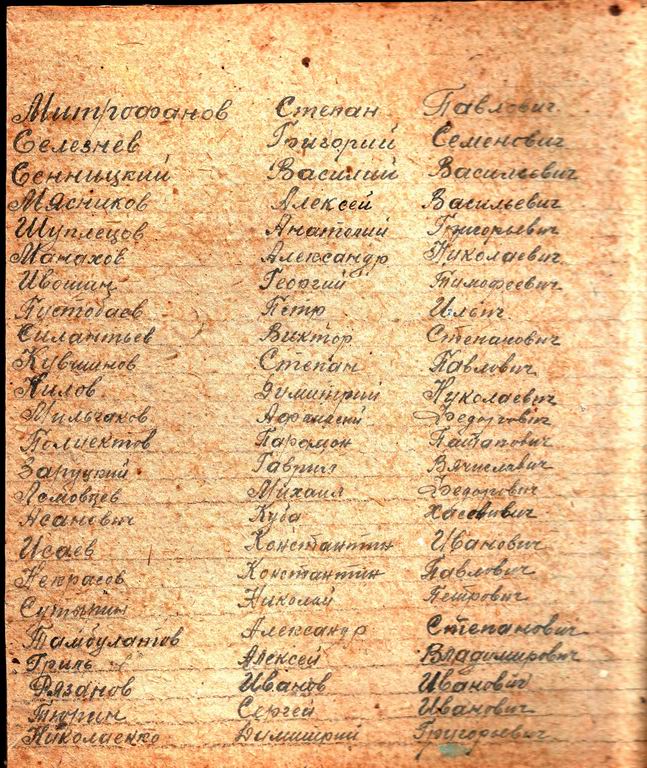 Митрофанов Степан Павлович
Селезнев Григорий Семенович
Сенницкий Василий Васильевич
Мясников Алексей Васильевич
Шуплецов Анатолий Григорьевич
Манахов Александр Николаевич
Ивошин Георгий Тимофеевич
Пустобаев Петр Ильич
Силантьев Виктор Степанович
Кувшинов Степан Павлович
Килов Думитрий Николаевич
Мильчаков Афанасий Федорович
Полиектов Парамон Патапович
Заруцкий Гаврил Вячиславич
Михаил Федорович
Асанович Куба
Исаев Константин Иванович
Некрасов Константин Павлович
Сутыгин Николай Петрович
Тамбулатов Александр Степанович
Гриль Алексей Владимирович
Рязанов Иванов Иванович
Тюрин Сергей Иванович
Николаенко Димитрий Григорьевич